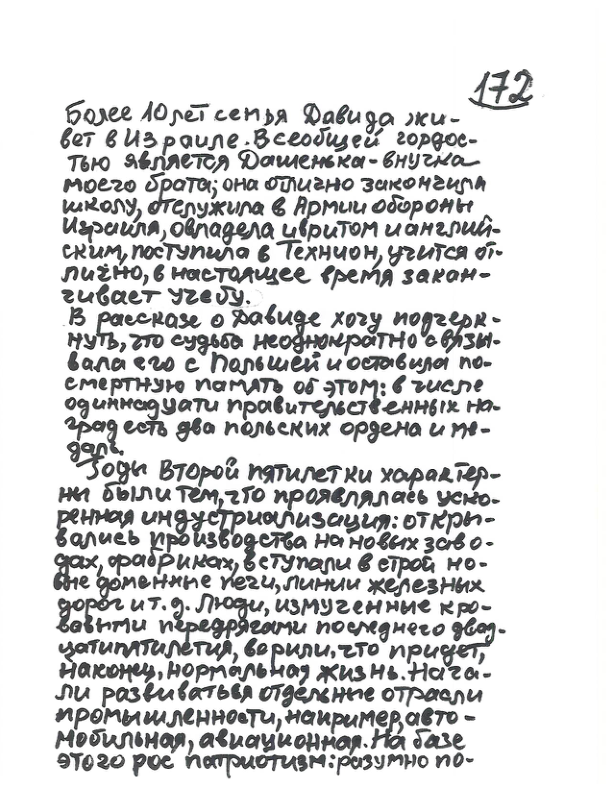 172
Более 10 лет семья Давида жи-
вет в Израиле. Всеобщей гордос-
тью является Дашенька - внучка
моего брата; она отлично закончила
школу, отслужила в Армии обороны
Израиля, овладела ивритом и англий-
ским, поступила в Технион, учится от-
лично, в настоящее время закан-
чивает учебу.
В рассказе о Давиде хочу подчерк-
нуть, что судьба неоднократно связы-
вала его с Польшей и оставила по-
смертную память об этом: в числе
одиннадцати правительственных на-
град есть два польских ордена и ме-
даль.
Годы Второй пятилетки характер-
ны были тем, что проявлялась уско-
ренная индустриализация: откры-
вались производства на новых заво-
дах, фабриках, вступали в строй но-
вые доменные печи, линии железных
дорог и т.д. Люди, измученные кро-
вавыми передрягами последнего двад-
цатипятилетия, верили, что придет,
наконец, нормальная жизнь. Нача-
ли развиваться отдельные отрасли
промышленности, например, авто-
мобильная, авиационная. На базе
этого рос патриотизм: разумно по-